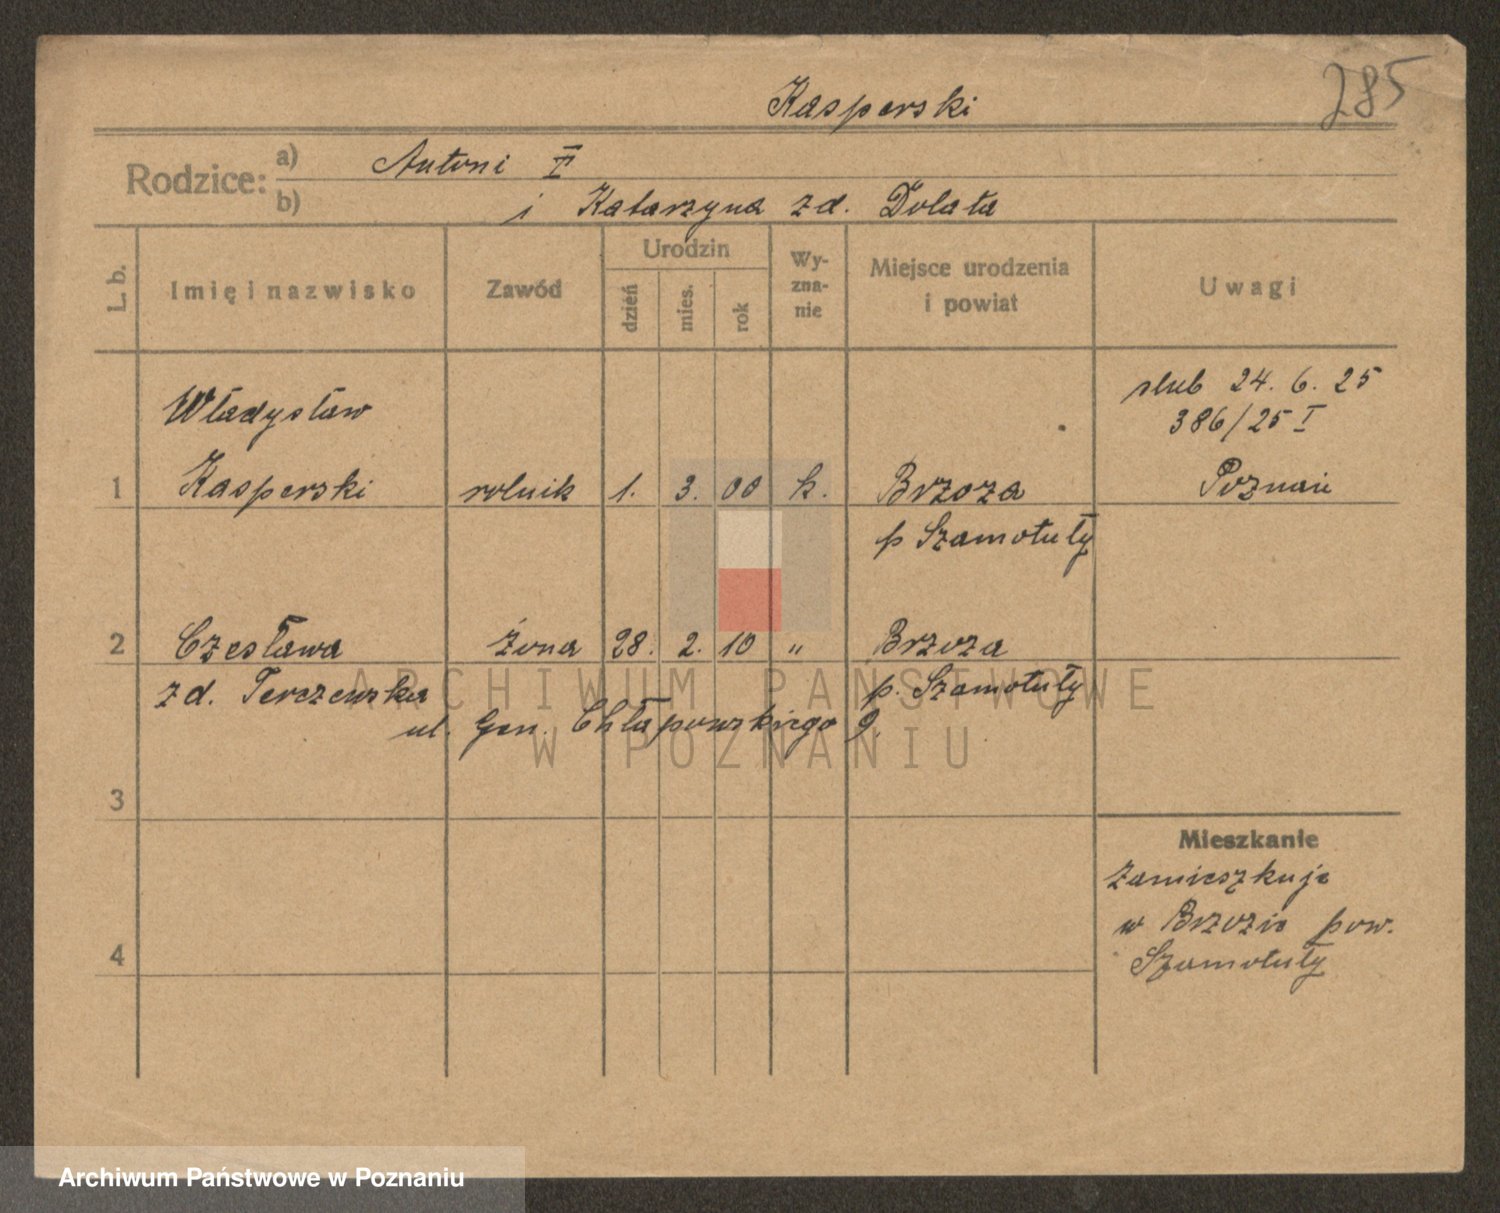 Kasperski
285
Rodzice:
a) Antoni I
b) i Katarzyna zd. Dolata
L. b.
Imię i nazwisko
Zawód
Urodzin
dzień
mies.
rok
Wy-
zna-
nie
Miejsce urodzenia
i powiat
Uwagi
slub 24. 6. 25
Władysław
386/25 I
1 Kasperski rolnik 1. 3. 00 k. Brzoza Poznań
p Szamotuły
2 Czesława żona 28. 2. 10 " Brzoza
zd. Terczewska p. Szamotuły
ul. Gen. Chłapowskiego 9.
3
Mieszkanie
zamieszkuje
w Brzozie pow.
4 Szamotuły
ARCHIWUM PAŃSTWOWE
W POZNANIU
Archiwum Państwowe w Poznaniu